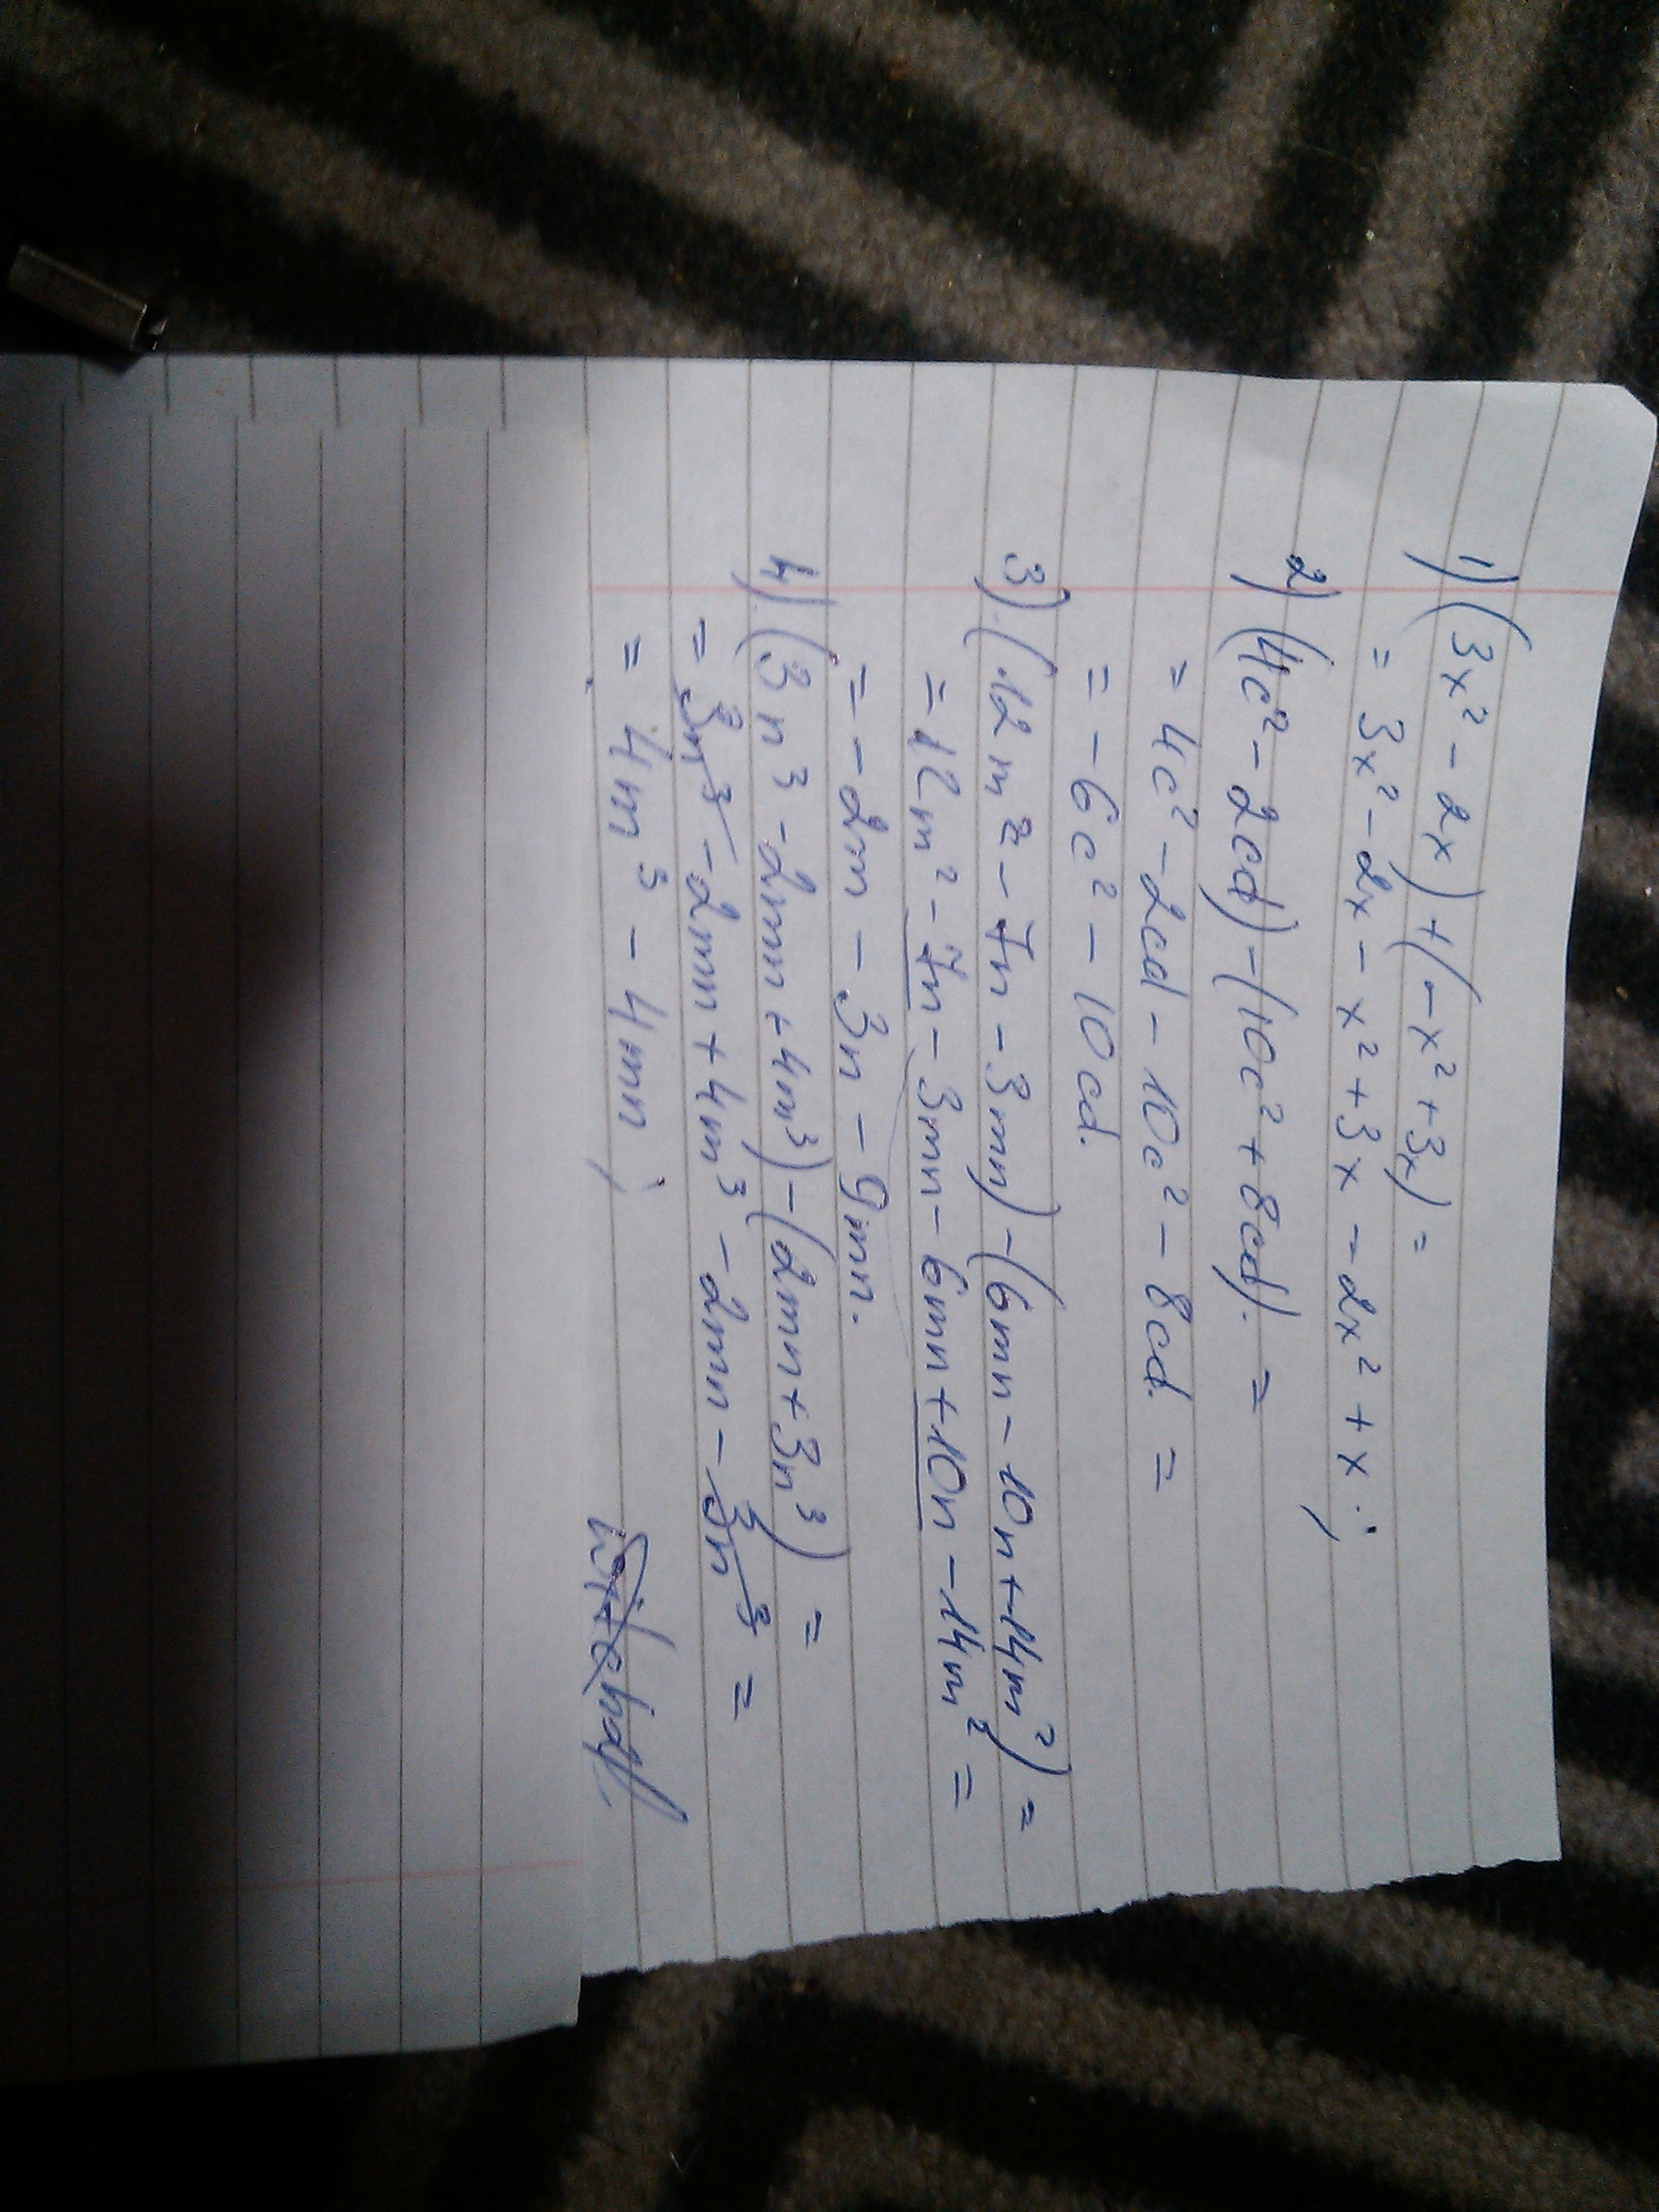 1) (3x² - 2x) + (- x² + 3x) =
= 3x² - 2x - x² + 3x - 2x² + x ;
2) (4c² - 2cd) - (10c² + 8cd). =
= 4c² - 2cd - 10c² - 8cd. =
= - 6c² - 10cd.
3) (12m² - 7n - 3mn) - (6mn - 10n + 14m²) =
= 12m² - 7n - 3mn - 6mn + 10n - 14m² =
= - 2m - 3n - 9mn.
4) (3n³ - 2mn + 4m³) - (2mn + 3n³) =
= 3n³ - 2mn + 4m³ - 2mn - 3n³ =
= 4m³ - 4mn ;